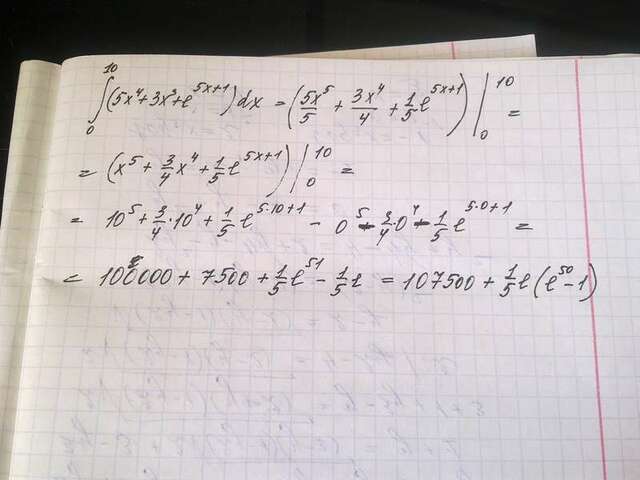 ∫₀¹⁰ (5x⁴+3x³+e⁵ˣ⁺¹)dx = (5x⁵/5 + 3x⁴/4 + 1/5 e⁵ˣ⁺¹) |₀¹⁰ =
= (x⁵ + 3/4 x⁴ + 1/5 e⁵ˣ⁺¹) |₀¹⁰ =
= 10⁵ + 3/4 · 10⁴ + 1/5 e⁵·¹⁰⁺¹ - 0⁵ - 3/4 0⁴ - 1/5 e⁵·⁰⁺¹ =
= 100000 + 7500 + 1/5 e⁵¹ - 1/5 e = 107500 + 1/5 e (e⁵⁰ - 1)